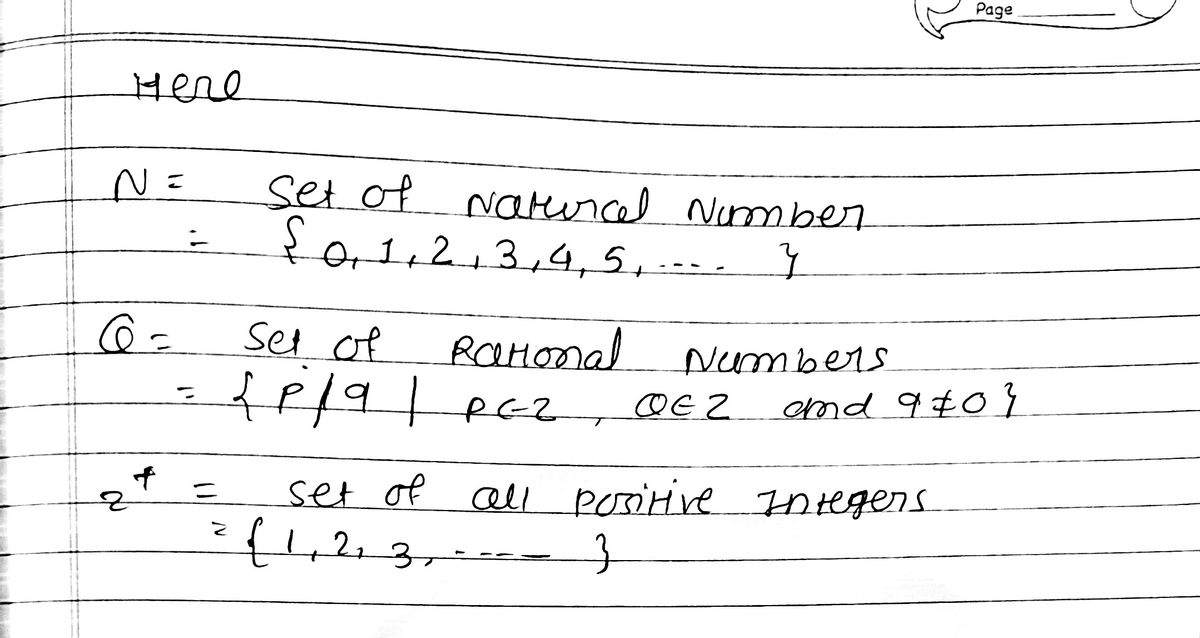 Page
Here
N = Set of Natural Number
= { 0, 1, 2, 3, 4, 5, ---- }
Q = Set of Rational Numbers
= { P/q | P ∈ Z, Q ∈ Z and q ≠ 0 }
Z⁺ = Set of all positive Integers
= { 1, 2, 3, ---- }